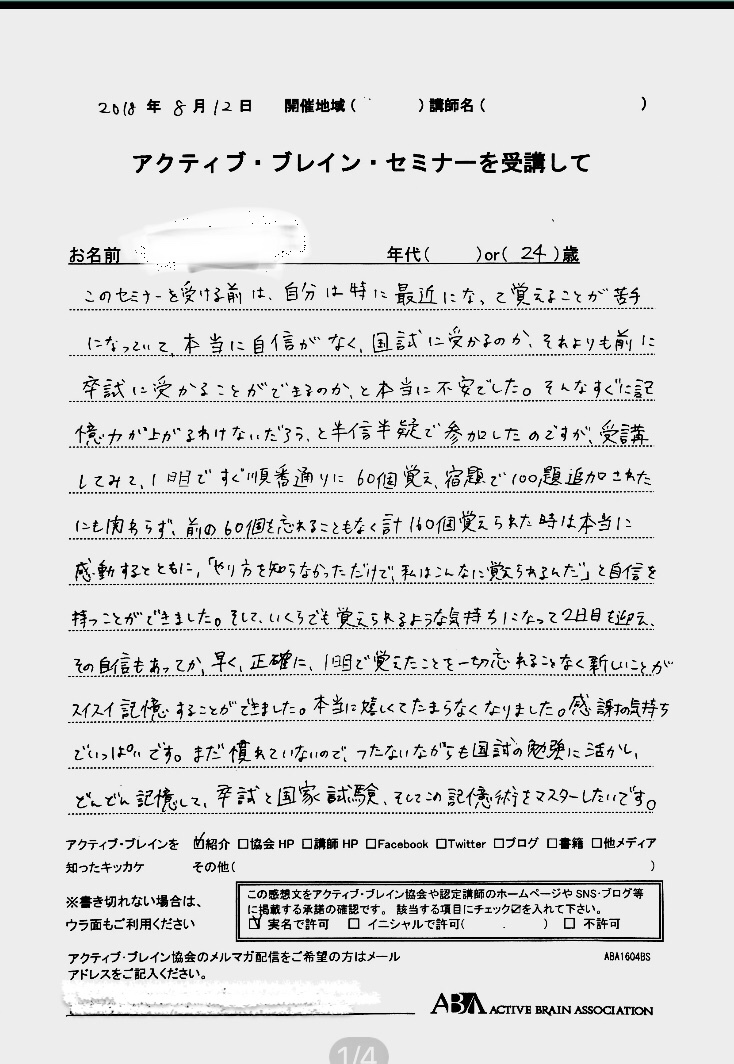 2018 年 8 月 12 日 開催地域( )講師名( )
アクティブ・ブレイン・セミナーを受講して
お名前 年代( )or( 24 )歳
このセミナーを受ける前は、自分は特に最近になって覚えることが苦手
になっていて、本当に自信がなく、国試に受かるのか、それよりも前に
卒試に受かることができるのか、と本当に不安でした。そんなすぐに記
憶力が上がるわけないだろう、と半信半疑で参加したのですが、受講
してみて、1日目ですぐ順番通りに60個覚え、宿題で100題追加された
にも関わらず、前の60個を忘れることもなく計160個覚えられた時は本当に
感動するとともに、「やり方を知らなかっただけで、私はこんなに覚えられるんだ」と自信を
持つことができました。そして、いくらでも覚えられるような気持ちになって2日目を迎え、
その自信もあってか、早く、正確に、1日目で覚えたことを一切忘れることなく新しいことが
スイスイ記憶することができました。本当に嬉しくてたまらなくなりました。感謝の気持ち
でいっぱいです。まだ慣れていないので、つたないながらも国試の勉強に活かし、
どんどん記憶して、卒試と国家試験、そしてこの記憶術をマスターしたいです。
アクティブ・ブレインを ☑紹介 □協会HP □講師HP □Facebook □Twitter □ブログ □書籍 □他メディア
知ったキッカケ その他( )
※書き切れない場合は、
ウラ面もご利用ください
この感想文をアクティブ・ブレイン協会や認定講師のホームページやSNS・ブログ等
に掲載する承諾の確認です。 該当する項目にチェック☑を入れて下さい。
☑ 実名で許可 □ イニシャルで許可( . ) □ 不許可
アクティブ・ブレイン協会のメルマガ配信をご希望の方はメール
アドレスをご記入ください。
ABA1604BS
ABA ACTIVE BRAIN ASSOCIATION
1/4